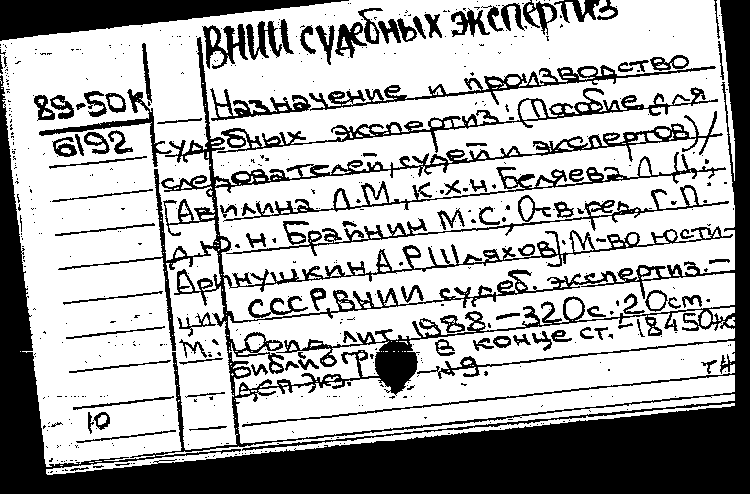 ВНИИ судебных экспертиз
89-50К
6192
Назначение и производство
судебных экспертиз: (Пособие для
следователей, судей и экспертов) /
[Авилина Л.М., к.х.н. Беляева Л.Д.;
д.ю.н. Брайнин М.С.; Отв. ред. Г.П.
Аринушкин, А.Р. Шляхов]; М-во юсти-
ции СССР, ВНИИ судеб. экспертиз. –
М.: Юрид. лит., 1988. – 320 с.: 20 см.
Библиогр. в конце ст.
ДСП Экз. N 9.
10